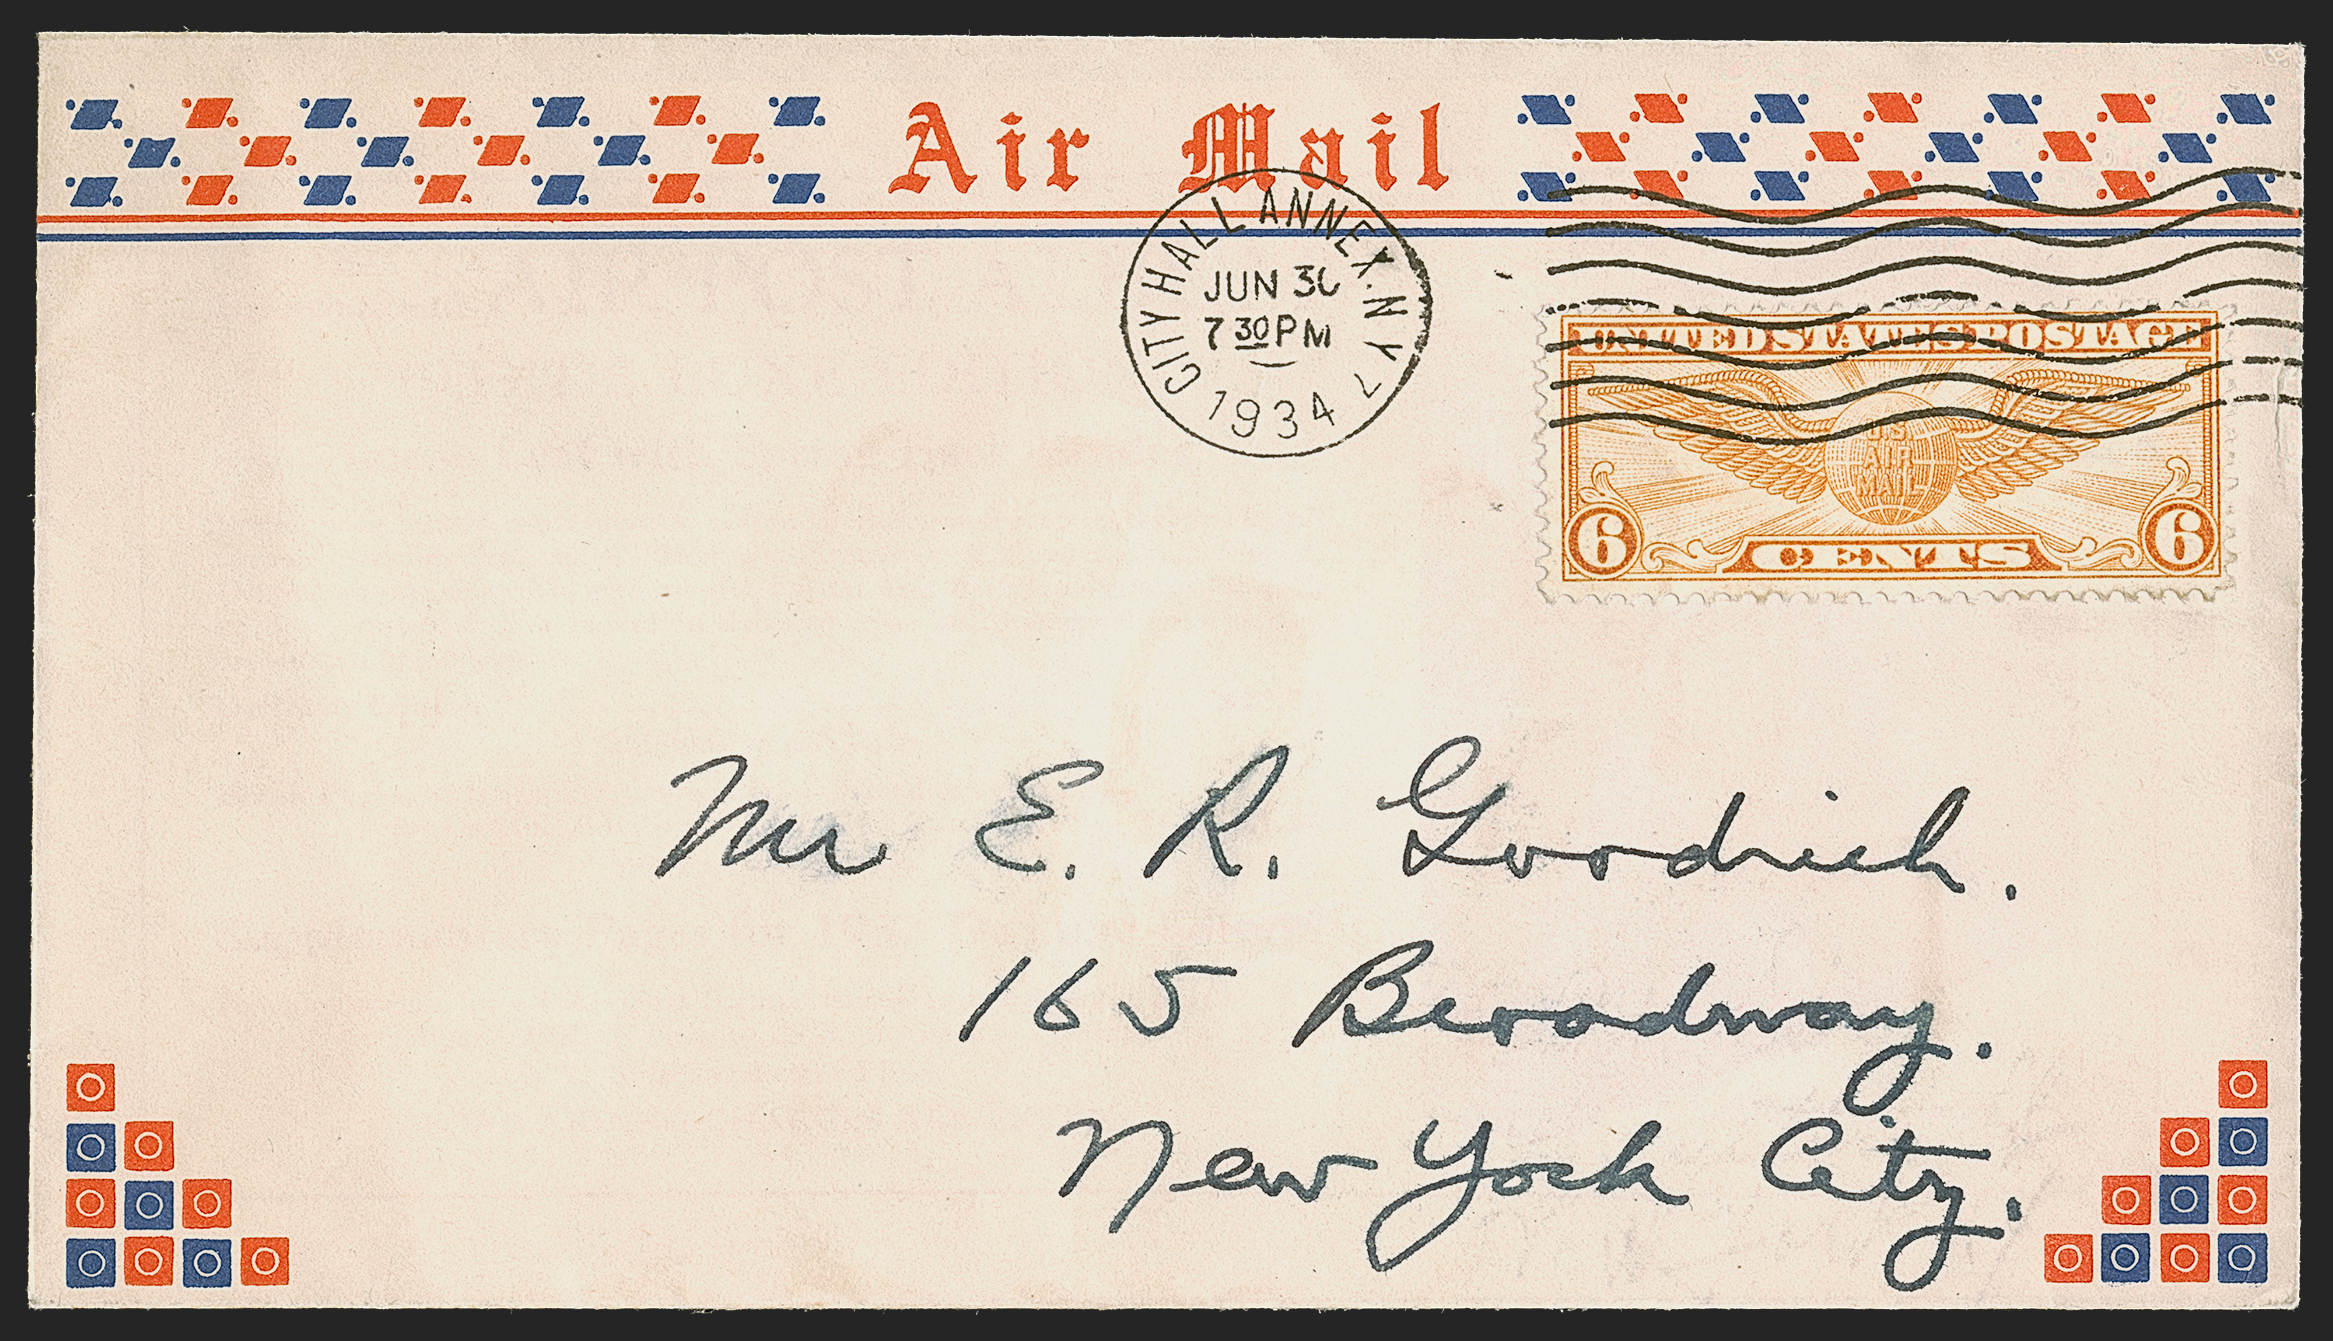 Air Mail
CITY HALL ANNEX. N Y 7
JUN 30
7 30 PM
1934
UNITED STATES POSTAGE
U.S.
AIR
MAIL
6 CENTS 6
Mr E. R. Goodrich.
165 Broadway.
New York City.